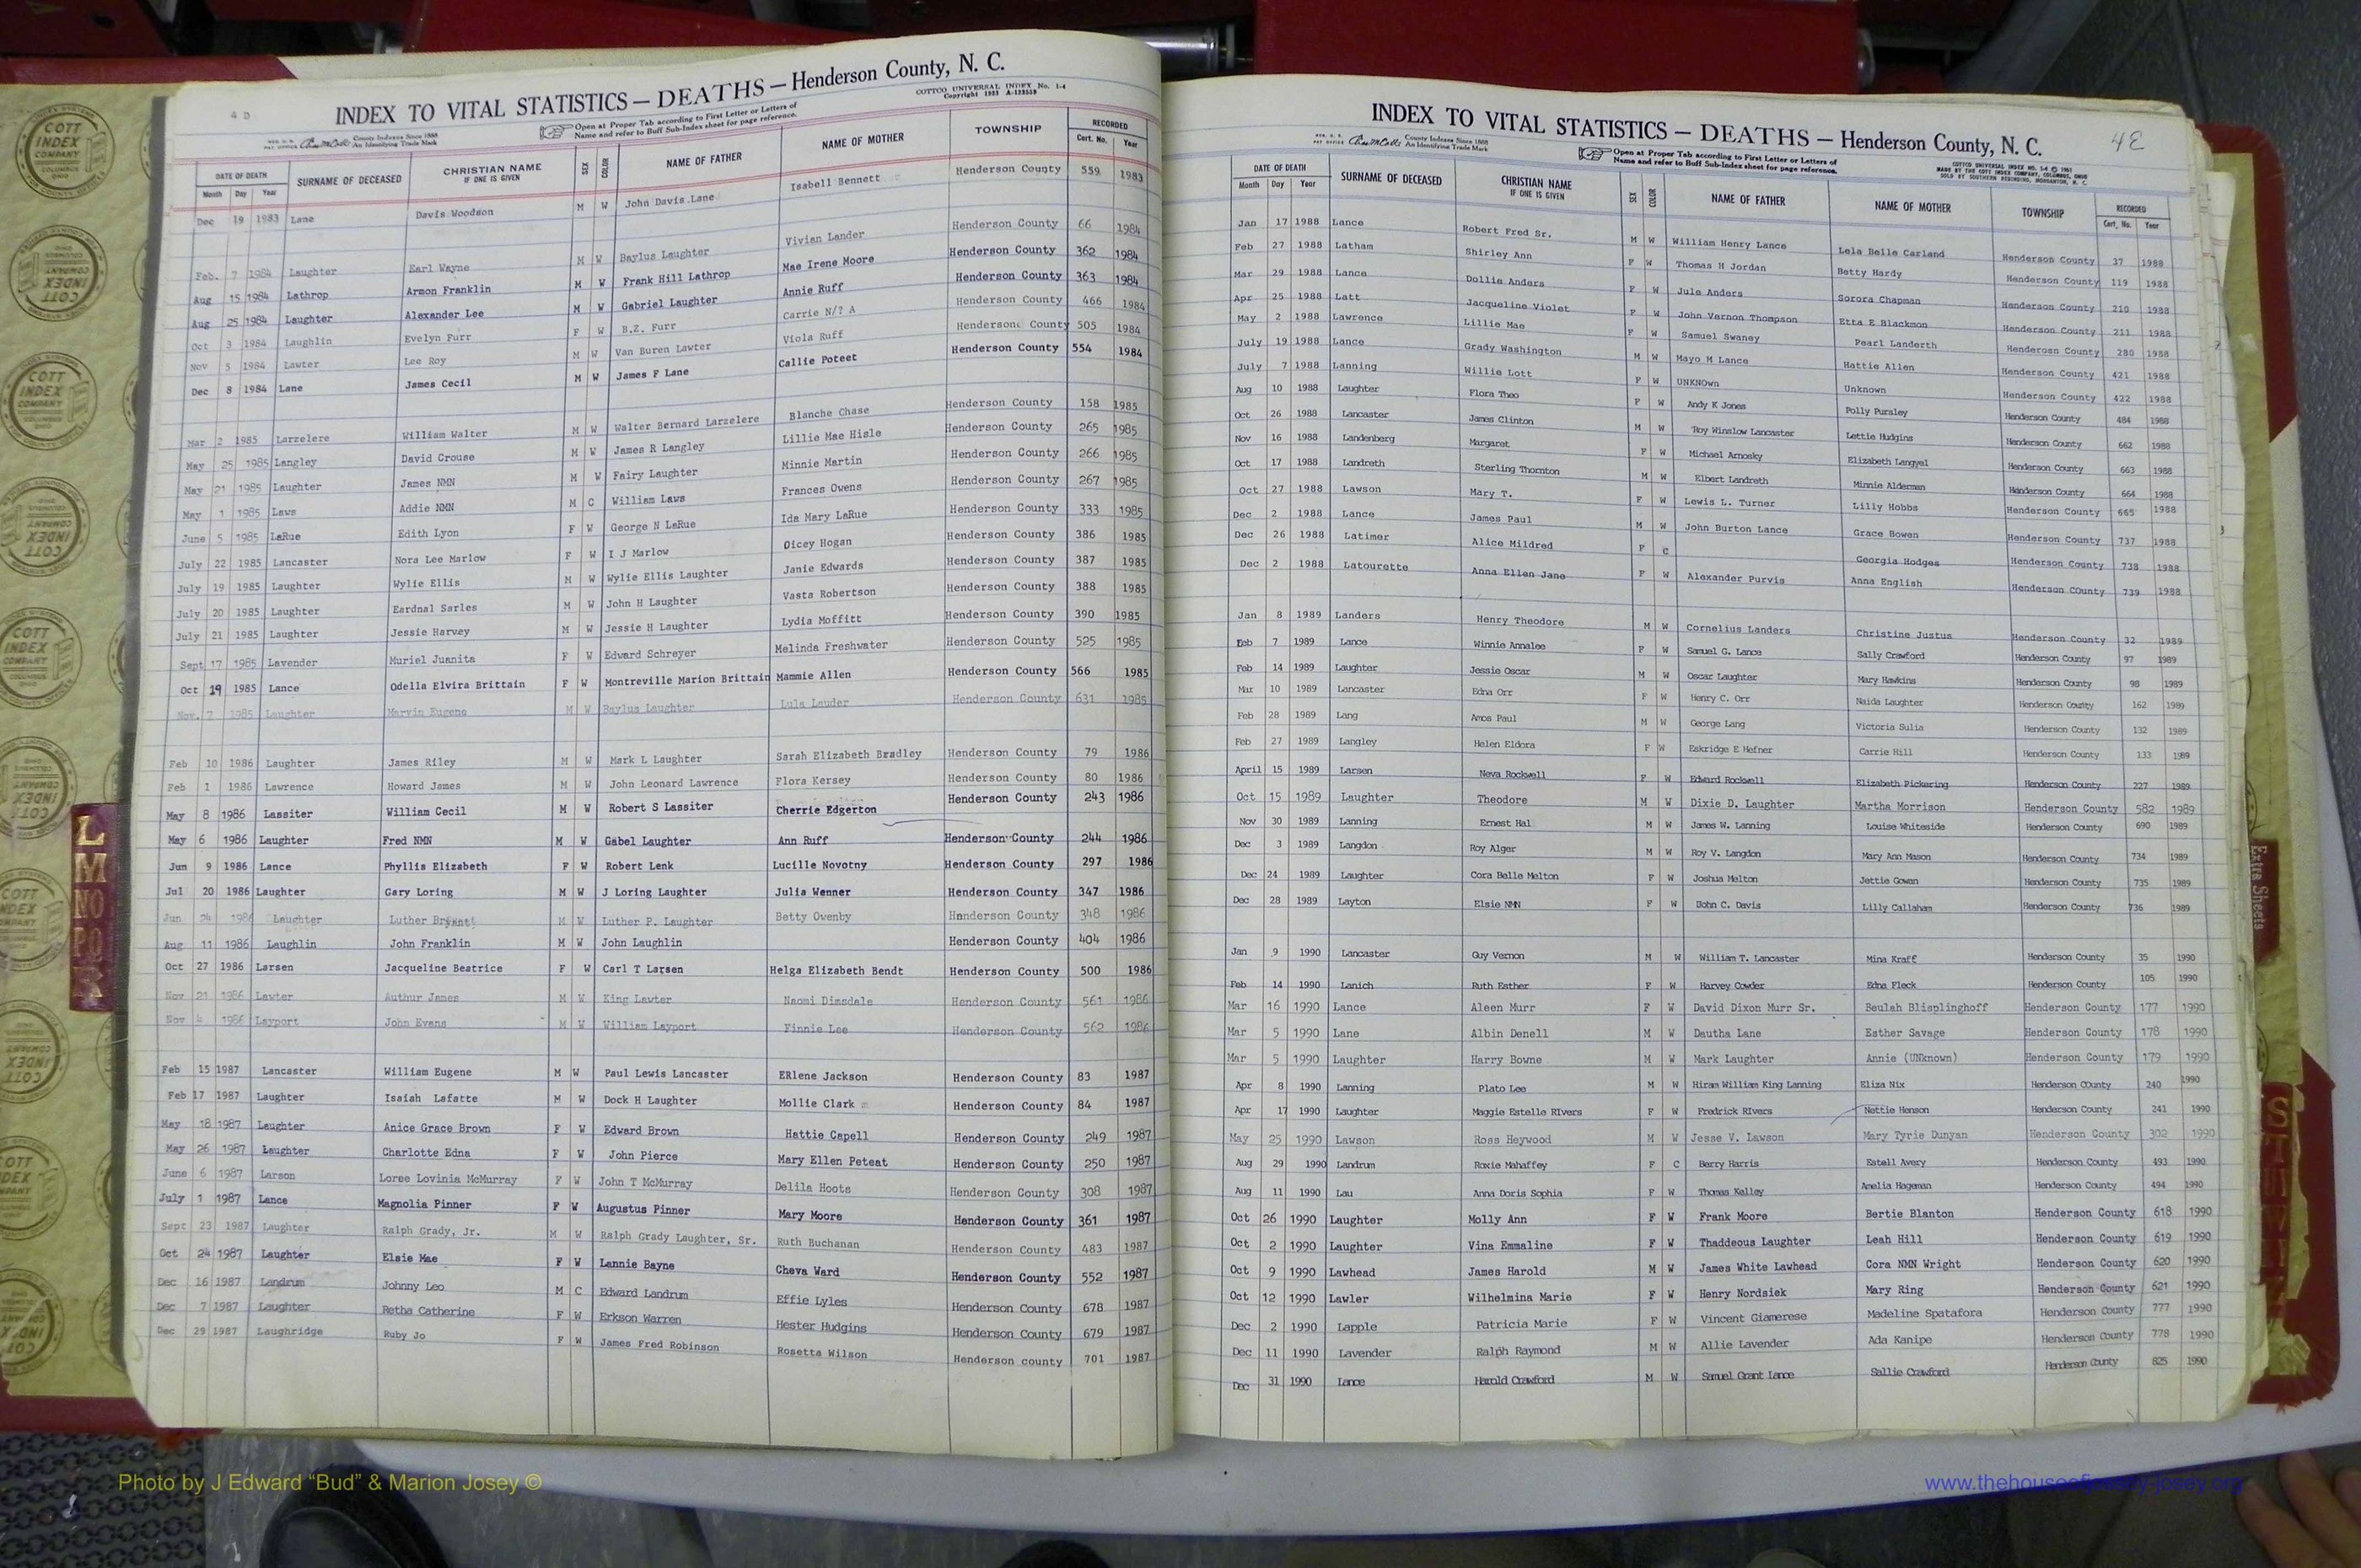 4 D
INDEX TO VITAL STATISTICS — DEATHS — Henderson County, N. C.
COTTCO UNIVERSAL INDEX No. 1-4
Copyright 1933 A-122559
County Indexes Since 1888
An Identifying Trade Mark
Open at Proper Tab according to First Letter or Letters of
Name and refer to Buff Sub-Index sheet for page reference.
DATE OF DEATH SURNAME OF DECEASED CHRISTIAN NAME IF ONE IS GIVEN SEX COLOR NAME OF FATHER NAME OF MOTHER TOWNSHIP RECORDED
Month Day Year Cert. No. Year
Dec 19 1983 Lane Davis Woodson M W John Davis Lane Isabell Bennett Henderson County 559 1983
Feb. 7 1984 Laughter Earl Wayne M W Baylus Laughter Vivian Lander Henderson County 66 1984
Aug 15 1984 Lathrop Armon Franklin M W Frank Hill Lathrop Mae Irene Moore Henderson County 362 1984
Aug 25 1984 Laughter Alexander Lee M W Gabriel Laughter Annie Ruff Henderson County 363 1984
Oct 3 1984 Laughlin Evelyn Furr F W B.Z. Furr Carrie N/? A Henderson County 466 1984
Nov 5 1984 Lawter Lee Roy M W Van Buren Lawter Viola Ruff Henderson County 505 1984
Dec 8 1984 Lane James Cecil M W James F Lane Callie Poteet Henderson County 554 1984
Mar 2 1985 Larzelere William Walter M W Walter Bernard Larzelere Blanche Chase Henderson County 158 1985
May 25 1985 Langley David Crouse M W James R Langley Lillie Mae Hisle Henderson County 265 1985
May 21 1985 Laughter James NMN M W Fairy Laughter Minnie Martin Henderson County 266 1985
May 1 1985 Laws Addie NMN M C William Laws Frances Owens Henderson County 267 1985
June 5 1985 LaRue Edith Lyon F W George N LaRue Ida Mary LaRue Henderson County 333 1985
July 22 1985 Lancaster Nora Lee Marlow F W I J Marlow Dicey Hogan Henderson County 386 1985
July 19 1985 Laughter Wylie Ellis M W Wylie Ellis Laughter Janie Edwards Henderson County 387 1985
July 20 1985 Laughter Eardnal Sarles M W John H Laughter Vasta Robertson Henderson County 388 1985
July 21 1985 Laughter Jessie Harvey M W Jessie H Laughter Lydia Moffitt Henderson County 390 1985
Sept 17 1985 Lavender Muriel Juanita F W Edward Schreyer Melinda Freshwater Henderson County 525 1985
Oct 19 1985 Lance Odella Elvira Brittain F W Montreville Marion Brittain Mammie Allen Henderson County 566 1985
Nov. 7 1985 Laughter Marvin Eugene M W Baylus Laughter Lula Lauder Henderson County 631 1985
Feb 10 1986 Laughter James Riley M W Mark L Laughter Sarah Elizabeth Bradley Henderson County 79 1986
Feb 1 1986 Lawrence Howard James M W John Leonard Lawrence Flora Kersey Henderson County 80 1986
May 8 1986 Lassiter William Cecil M W Robert S Lassiter Cherrie Edgerton Henderson County 243 1986
May 6 1986 Laughter Fred NMN M W Gabel Laughter Ann Ruff Henderson County 244 1986
Jun 9 1986 Lance Phyllis Elizabeth F W Robert Lenk Lucille Novotny Henderson County 297 1986
Jul 20 1986 Laughter Gary Loring M W J Loring Laughter Julia Wenner Henderson County 347 1986
Jun 24 1986 Laughter Luther M W Luther P. Laughter Betty Owenby Henderson County 348 1986
Aug 11 1986 Laughlin John Franklin M W John Laughlin Henderson County 404 1986
Oct 27 1986 Larsen Jacqueline Beatrice F W Carl T Larsen Helga Elizabeth Bendt Henderson County 500 1986
Nov 21 1986 Lawter Authur James M W King Lawter Naomi Dimsdale Henderson County 561 1986
Nov 4 1986 Layport John Evans M W William Layport Finnie Lee Henderson County 562 1986
Feb 15 1987 Lancaster William Eugene M W Paul Lewis Lancaster ERlene Jackson Henderson County 83 1987
Feb 17 1987 Laughter Isaiah Lafatte M W Dock H Laughter Mollie Clark Henderson County 84 1987
May 18 1987 Laughter Anice Grace Brown F W Edward Brown Hattie Capell Henderson County 249 1987
May 26 1987 Laughter Charlotte Edna F W John Pierce Mary Ellen Peteat Henderson County 250 1987
June 6 1987 Larson Loree Lovinia McMurray F W John T McMurray Delila Hoots Henderson County 308 1987
July 1 1987 Lance Magnolia Pinner F W Augustus Pinner Mary Moore Henderson County 361 1987
Sept 23 1987 Laughter Ralph Grady, Jr. M W Ralph Grady Laughter, Sr. Ruth Buchanan Henderson County 483 1987
Oct 24 1987 Laughter Elsie Mae F W Lannie Bayne Cheva Ward Henderson County 552 1987
Dec 16 1987 Landrum Johnny Leo M C Edward Landrum Effie Lyles Henderson County 678 1987
Dec 7 1987 Laughter Retha Catherine F W Erkson Warren Hester Hudgins Henderson County 679 1987
Dec 29 1987 Laughridge Ruby Jo F W James Fred Robinson Rosetta Wilson Henderson county 701 1987
L
M
NO
PQ
R
4E
INDEX TO VITAL STATISTICS — DEATHS — Henderson County, N. C.
County Indexes Since 1888
An Identifying Trade Mark
Open at Proper Tab according to First Letter or Letters of
Name and refer to Buff Sub-Index sheet for page reference.
COTTCO UNIVERSAL INDEX NO. 1-4 © 1961
MADE BY THE COTT INDEX COMPANY, COLUMBUS, OHIO
SOLD BY SOUTHERN REBINDING, MORGANTON, N. C.
DATE OF DEATH SURNAME OF DECEASED CHRISTIAN NAME IF ONE IS GIVEN SEX COLOR NAME OF FATHER NAME OF MOTHER TOWNSHIP RECORDED
Month Day Year Cert. No. Year
Jan 17 1988 Lance Robert Fred Sr. M W William Henry Lance Lela Belle Carland Henderson County 37 1988
Feb 27 1988 Latham Shirley Ann F W Thomas H Jordan Betty Hardy Henderson County 119 1988
Mar 29 1988 Lance Dollie Anders F W Jule Anders Sorora Chapman Henderson County 210 1988
Apr 25 1988 Latt Jacqueline Violet F W John Vernon Thompson Etta E Blackmon Henderson County 211 1988
May 2 1988 Lawrence Lillie Mae F W Samuel Swaney Pearl Landerth Henderson County 280 1988
July 19 1988 Lance Grady Washington M W Mayo M Lance Hattie Allen Henderson County 421 1988
July 7 1988 Lanning Willie Lott F W UNKNOwn Unknown Henderson County 422 1988
Aug 10 1988 Laughter Flora Theo F W Andy K Jones Polly Pursley Henderson County 484 1988
Oct 26 1988 Lancaster James Clinton M W Roy Winslow Lancaster Lettie Hudgins Henderson County 662 1988
Nov 16 1988 Landenberg Margaret F W Michael Arnosky Elizabeth Langyel Henderson County 663 1988
Oct 17 1988 Landreth Sterling Thornton M W Elbert Landreth Minnie Alderman Henderson County 664 1988
Oct 27 1988 Lawson Mary T. F W Lewis L. Turner Lilly Hobbs Henderson County 665 1988
Dec 2 1988 Lance James Paul M W John Burton Lance Grace Bowen Henderson County 737 1988
Dec 26 1988 Latimer Alice Mildred F C Georgia Hodges Henderson County 738 1988
Dec 2 1988 Latourette Anna Ellen Jane F W Alexander Purvis Anna English Henderson County 739 1988
Jan 8 1989 Landers Henry Theodore M W Cornelius Landers Christine Justus Henderson County 32 1989
Feb 7 1989 Lance Winnie Annalee F W Samuel G. Lance Sally Crawford Henderson County 97 1989
Feb 14 1989 Laughter Jessie Oscar M W Oscar Laughter Mary Hawkins Henderson County 98 1989
Mar 10 1989 Lancaster Edna Orr F W Henry C. Orr Naida Laughter Henderson County 162 1989
Feb 28 1989 Lang Amos Paul M W George Lang Victoria Sulia Henderson County 132 1989
Feb 27 1989 Langley Helen Eldora F W Eskridge E Hefner Carrie Hill Henderson County 133 1989
April 15 1989 Larsen Neva Rockwell F W Edward Rockwell Elizabeth Pickering Henderson County 227 1989
Oct 15 1989 Laughter Theodore M W Dixie D. Laughter Martha Morrison Henderson County 582 1989
Nov 30 1989 Lanning Ernest Hal M W James W. Lanning Louise Whiteside Henderson County 690 1989
Dec 3 1989 Langdon Roy Alger M W Roy V. Langdon Mary Ann Mason Henderson County 734 1989
Dec 24 1989 Laughter Cora Belle Melton F W Joshua Melton Jettie Gowan Henderson County 735 1989
Dec 28 1989 Layton Elsie NMN F W John C. Davis Lilly Callaham Henderson County 736 1989
Jan 9 1990 Lancaster Guy Vernon M W William T. Lancaster Mina Kraff Henderson County 35 1990
Feb 14 1990 Lanich Ruth Esther F W Harvey Cowder Edna Fleck Henderson County 105 1990
Mar 16 1990 Lance Aleen Murr F W David Dixon Murr Sr. Beulah Blisplinghoff Henderson County 177 1990
Mar 5 1990 Lane Albin Denell M W Dautha Lane Esther Savage Henderson County 178 1990
Mar 5 1990 Laughter Harry Bowne M W Mark Laughter Annie (UNknown) Henderson County 179 1990
Apr 8 1990 Lanning Plato Lee M W Hiram William King Lanning Eliza Nix Henderson COunty 240 1990
Apr 17 1990 Laughter Maggie Estelle RIvers F W Fredrick RIvers Nettie Henson Henderson County 241 1990
May 25 1990 Lawson Ross Heywood M W Jesse V. Lawson Mary Tyrie Dunyan Henderson County 302 1990
Aug 29 1990 Landrum Roxie Mahaffey F C Berry Harris Estell Avery Henderson County 493 1990
Aug 11 1990 Lau Anna Doris Sophia F W Thomas Kelley Amelia Hageman Henderson County 494 1990
Oct 26 1990 Laughter Molly Ann F W Frank Moore Bertie Blanton Henderson County 618 1990
Oct 2 1990 Laughter Vina Emmaline F W Thaddeous Laughter Leah Hill Henderson County 619 1990
Oct 9 1990 Lawhead James Harold M W James White Lawhead Cora NMN Wright Henderson County 620 1990
Oct 12 1990 Lawler Wilhelmina Marie F W Henry Nordsiek Mary Ring Henderson County 621 1990
Dec 2 1990 Lapple Patricia Marie F W Vincent Giamerese Madeline Spatafora Henderson County 777 1990
Dec 11 1990 Lavender Ralph Raymond M W Allie Lavender Ada Kanipe Henderson County 778 1990
Dec 31 1990 Lance Harold Crawford M W Samuel Grant Lance Sallie Crawford Henderson County 825 1990
Extra Sheets
COTT
INDEX
COMPANY
Photo by J Edward “Bud” & Marion Josey ©